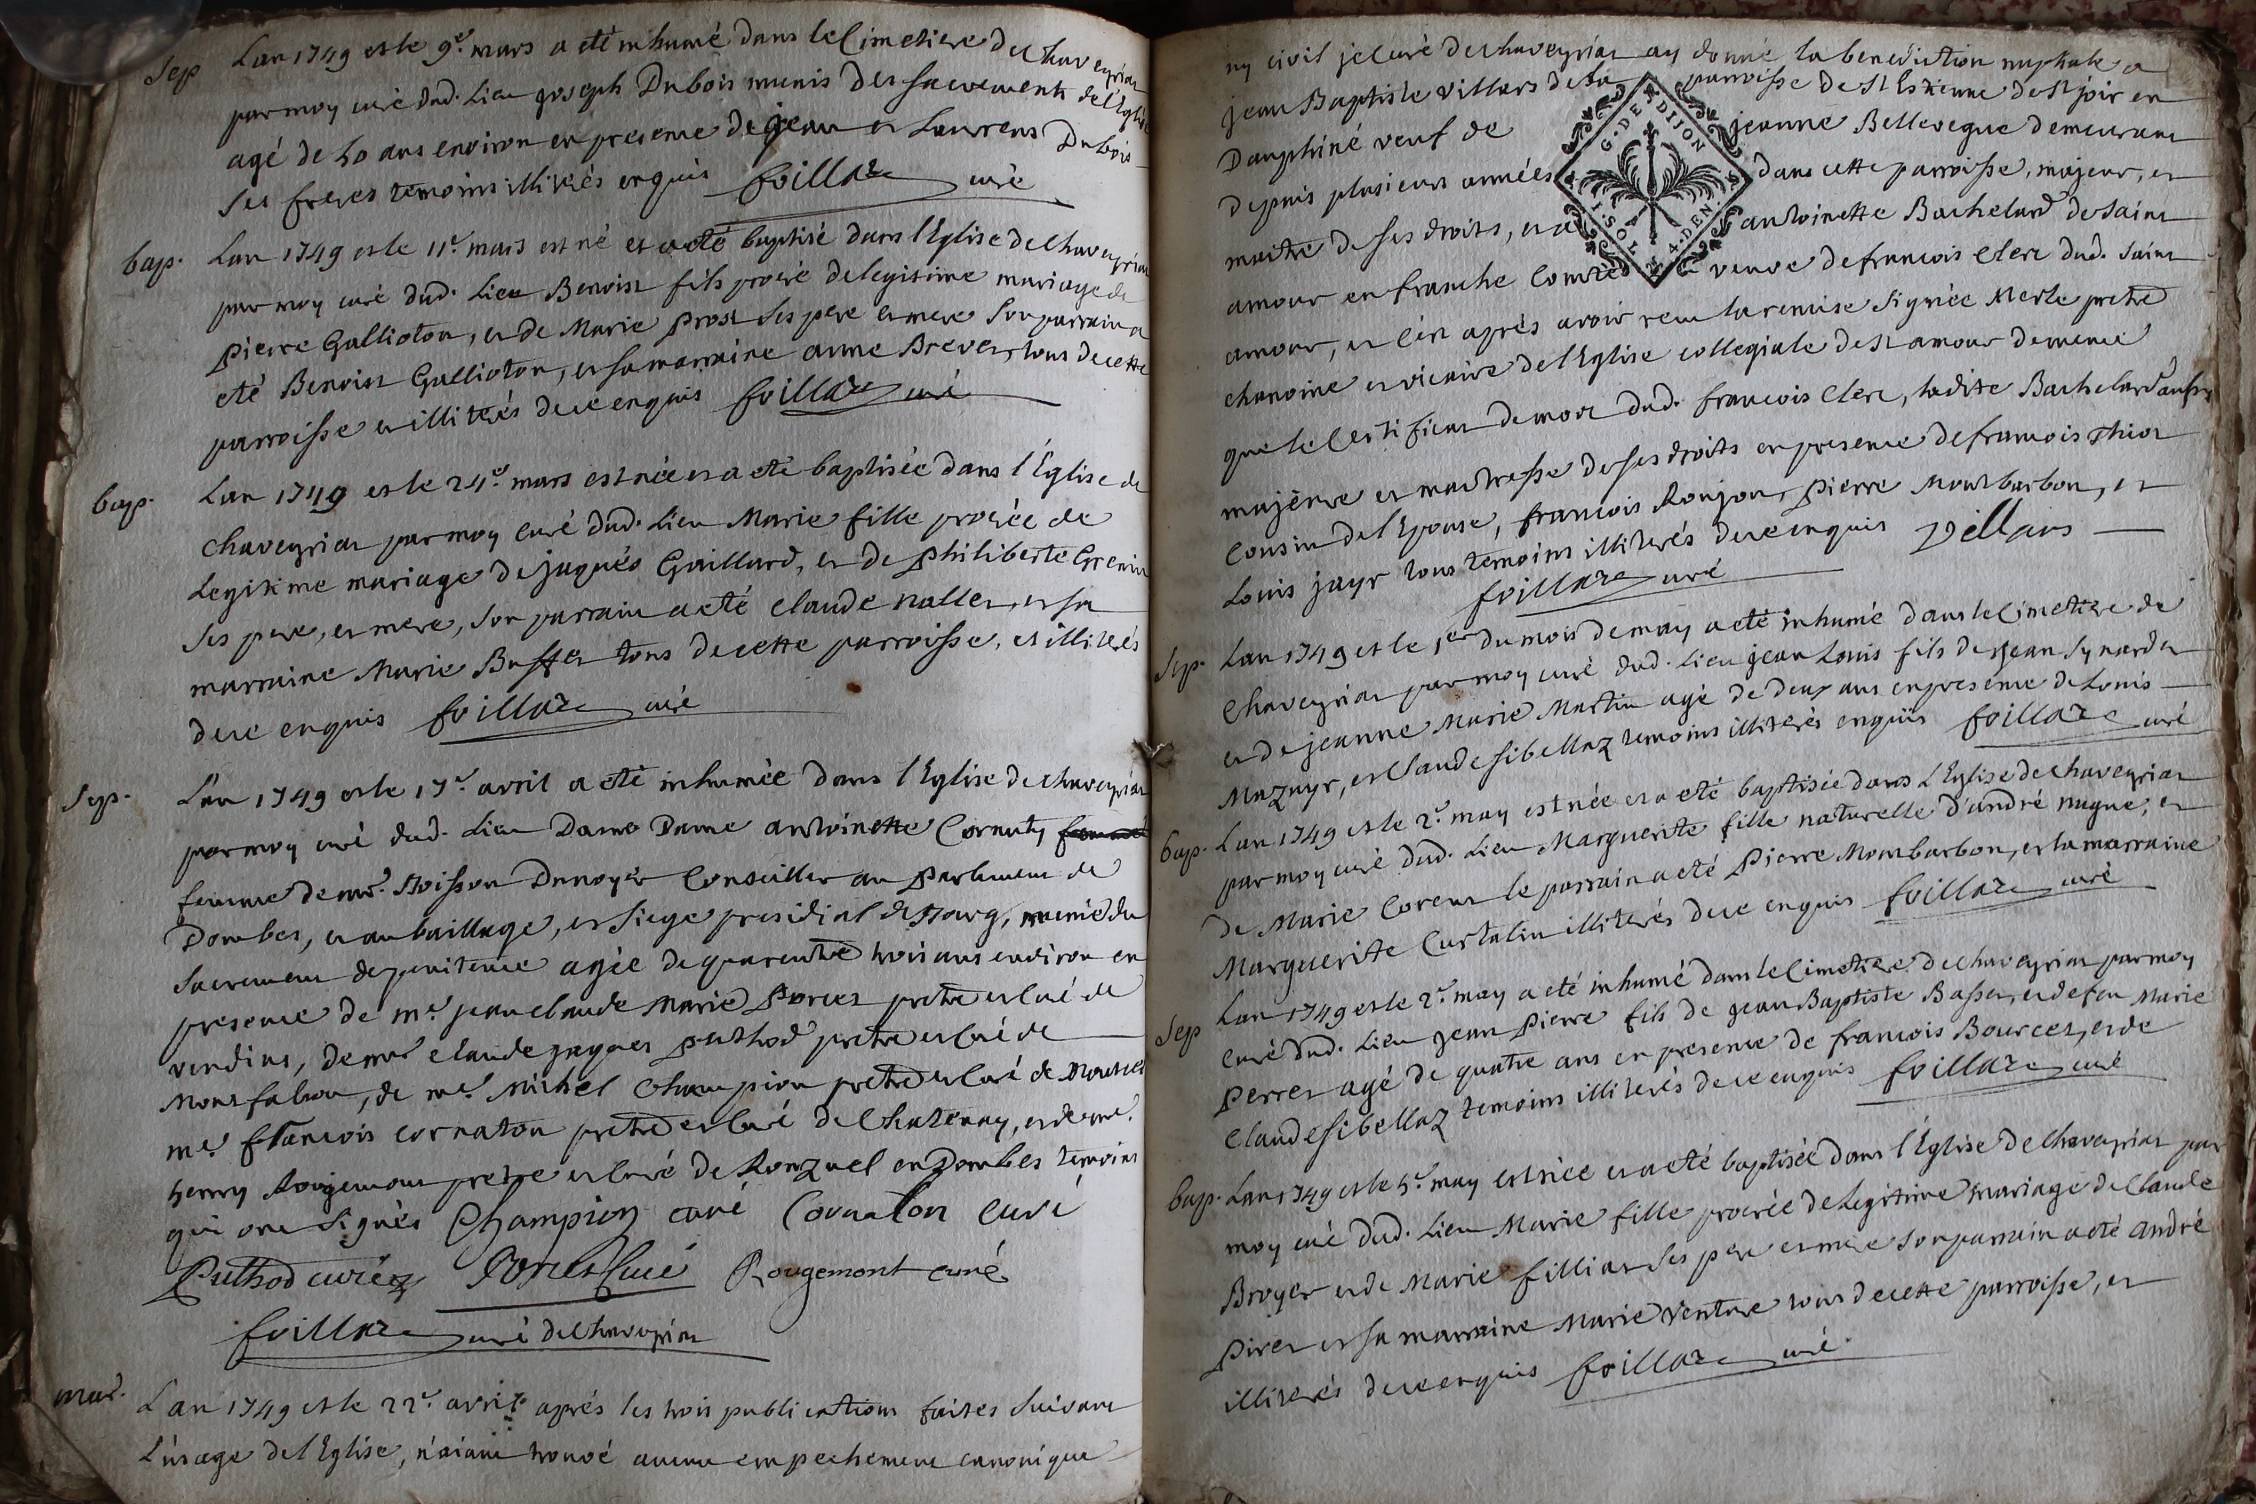 Sep L'an 1749 et le 9e. mars a eté inhumé dans le Cimetiere de Chaveyriat
par moy curé dud. Lieu Joseph Dubois munis des sacrements de l'Eglise
agé de 50 ans environ en presence de jean et Laurens Dubois
ses freres temoins illiterés enquis foillaz curé
bap. L'an 1749 et le 11e. mars est né et a eté baptisé dans l'Eglise de Chaveyriat
par moy curé dud. Lieu Benoist fils procréé de legitime mariage de
pierre Gallioton, et de Marie prost ses pere et mere son parrain a
eté Benoist Gallioton, et sa marraine anne Brevet, tous de cette
parroisse et illiterés de ce enquis foillaz curé
bap. L'an 1749 et le 24e. mars est née et a eté baptisée dans l'Eglise de
chaveyriat par moy curé dud. Lieu Marie fille procréée de
Legitime mariage de jaques Gaillard, et de philiberte Grenin
ses pere, et mere, son parrain a eté claude nallet et sa
marraine Marie Buffet tous de cette parroisse, et illiterés
de ce enquis foillaz curé
Sep. L'an 1749 et le 17e. avril a eté inhumée dans l'Eglise de chaveyriat
par moy curé dud. Lieu Dame Dame antoinette Cornuty
femme de mr. Doisson Dunoyer Conseiller au parlement de
Dombes, et au bailliage, et siege presidial de Bourg, munie du
sacrement de penitence agée de quarente trois ans environ en
presence de mr. jean claude Marie Porret pretre et Curé de
vendins, de mr. claude jaques puthod pretre et Curé de
Montfalcon, de mr. Michel Champion pretre et Curé de
mr. francois cornaton pretre et Curé de Chatenay, et de mr.
henry Rougemont pretre et Curé de Ronzuel en Dombes temoins
qui ont signés Champion curé Cornaton Curé
Puthod curé Porret Curé Rougemont curé
foillaz curé de Chaveyriat
mar. L'an 1749 et le 22e. avril aprés les trois publications faites suivant
l'usage de l'Eglise, n'aiant trouvé aucun empechement canonique
ny civil je curé de chaveyriat ay donné la benediction nuptiale a
jean Baptiste villars de la parroisse de St Estienne de St joir en
Dauphiné veuf de jeanne Bellevegue demeurant
depuis plusieurs années dans cette parroisse, majeur, et
maitre de ses droits, et a antoinette Bachelard de saint
amour en franche Comté veuve de francois Clerc dud. saint
amour, et c'en aprés avoir reçu la remise signée Merle pretre
chanoine et vicaire de l'Eglise collegiale de St amour de meme
que le Certificat de mort dud. francois Clerc, ladite Bachelard aussy
majeure et maitresse de ses droits en presence de francois Thiot
Cousin de l'Epouse, francois Roujon, pierre Montbarbon, et
Louis jayr tous temoins illiterés de ce enquis Villars
foillaz curé
G. DE DIJON
1. SOL 4. DEN.
Sep. L'an 1749 et le 1er du mois de may a eté inhumé dans le Cimetiere de
Chaveyriat par moy curé dud. Lieu jean Louis fils de jean Synard et
et de jeanne Marie Martin agé de deux ans en presence de Louis
Mazuyr, et Claude sibellaz temoins illiterés enquis foillaz curé
bap. L'an 1749 et le 2e. may est née et a eté baptisée dans l'Eglise de Chaveyriat
par moy curé dud. Lieu Marguerite fille naturelle d'andré nugue, et
de Marie Corent le parrain a eté Pierre Monbarbon, et la marraine
Marguerite Curtalin illiterés de ce enquis foillaz curé
Sep L'an 1749 et le 2e. may a eté inhumé dans le Cimetiere de chaveyriat par moy
curé dud. Lieu jean Pierre fils de jean Baptiste Basset, et de feu Marie
Perret agé de quatre ans en presence de francois Bourcet, et de
Claude sibellaz temoins illiterés de ce enquis foillaz curé
bap. L'an 1749 et le 5e. may est née et a eté baptisée dans l'Eglise de Chaveyriat par
moy curé dud. Lieu Marie fille procréée de Legitime mariage de Claude
Broyer et de Marie filliat ses pere et mere son parrain a eté andré
Piret et sa marraine Marie Venture tous de cette parroisse, et
illiterés de ce enquis foillaz curé